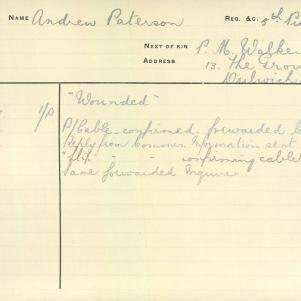 NAME Andrew Paterson REG. &C. 5th
NEXT OF KIN P. M. Walker
ADDRESS 13. The Grov
Dulwich
1/P "Wounded"
P/Cable confirmed forwarded
Reply from Comons. Information sent
" - - confirming cable
Same forwarded Enquirer